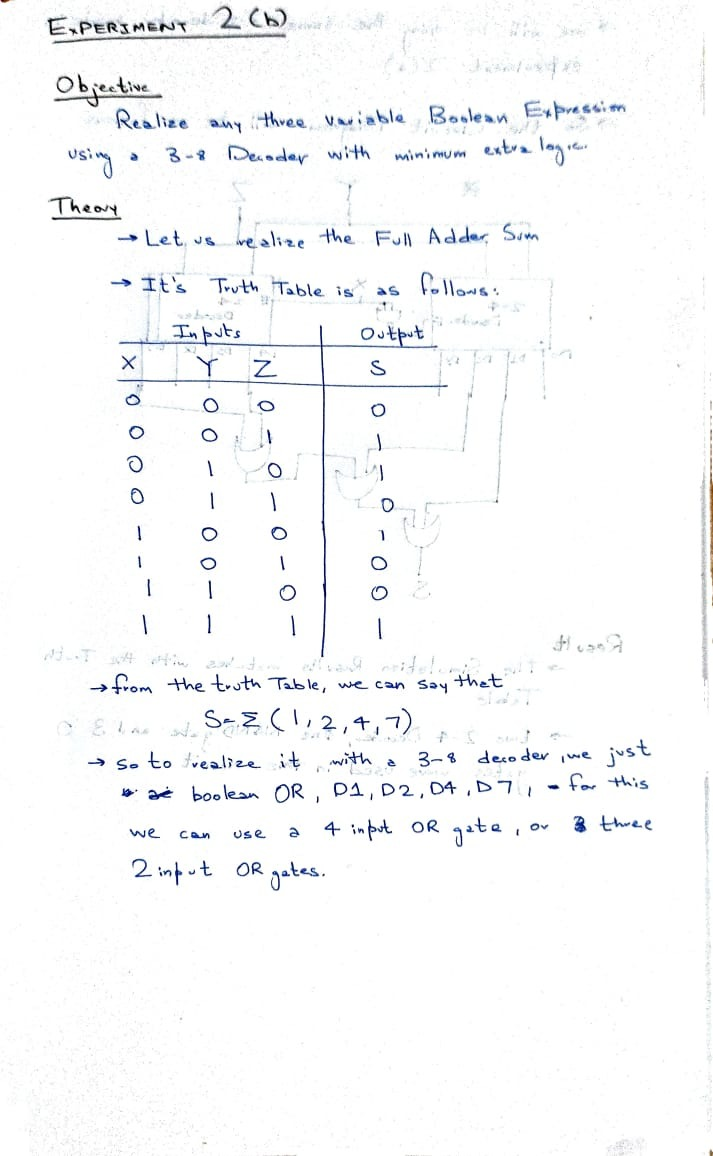 EXPERIMENT 2 (b)
Objective
Realize any three variable Boolean Expression
using a 3-8 Decoder with minimum extra logic.
Theory
→ Let us realize the Full Adder Sum
→ It's Truth Table is as follows:
Inputs Output
X Y Z S
0 0 0 0
0 0 1 1
0 1 0 1
0 1 1 0
1 0 0 1
1 0 1 0
1 1 0 0
1 1 1 1
→ from the truth Table, we can say that
S=Σ(1,2,4,7)
→ so to realize it with a 3-8 decoder, we just
boolean OR, D1, D2, D4, D7, - for this
we can use a 4 input OR gate, or three
2 input OR gates.